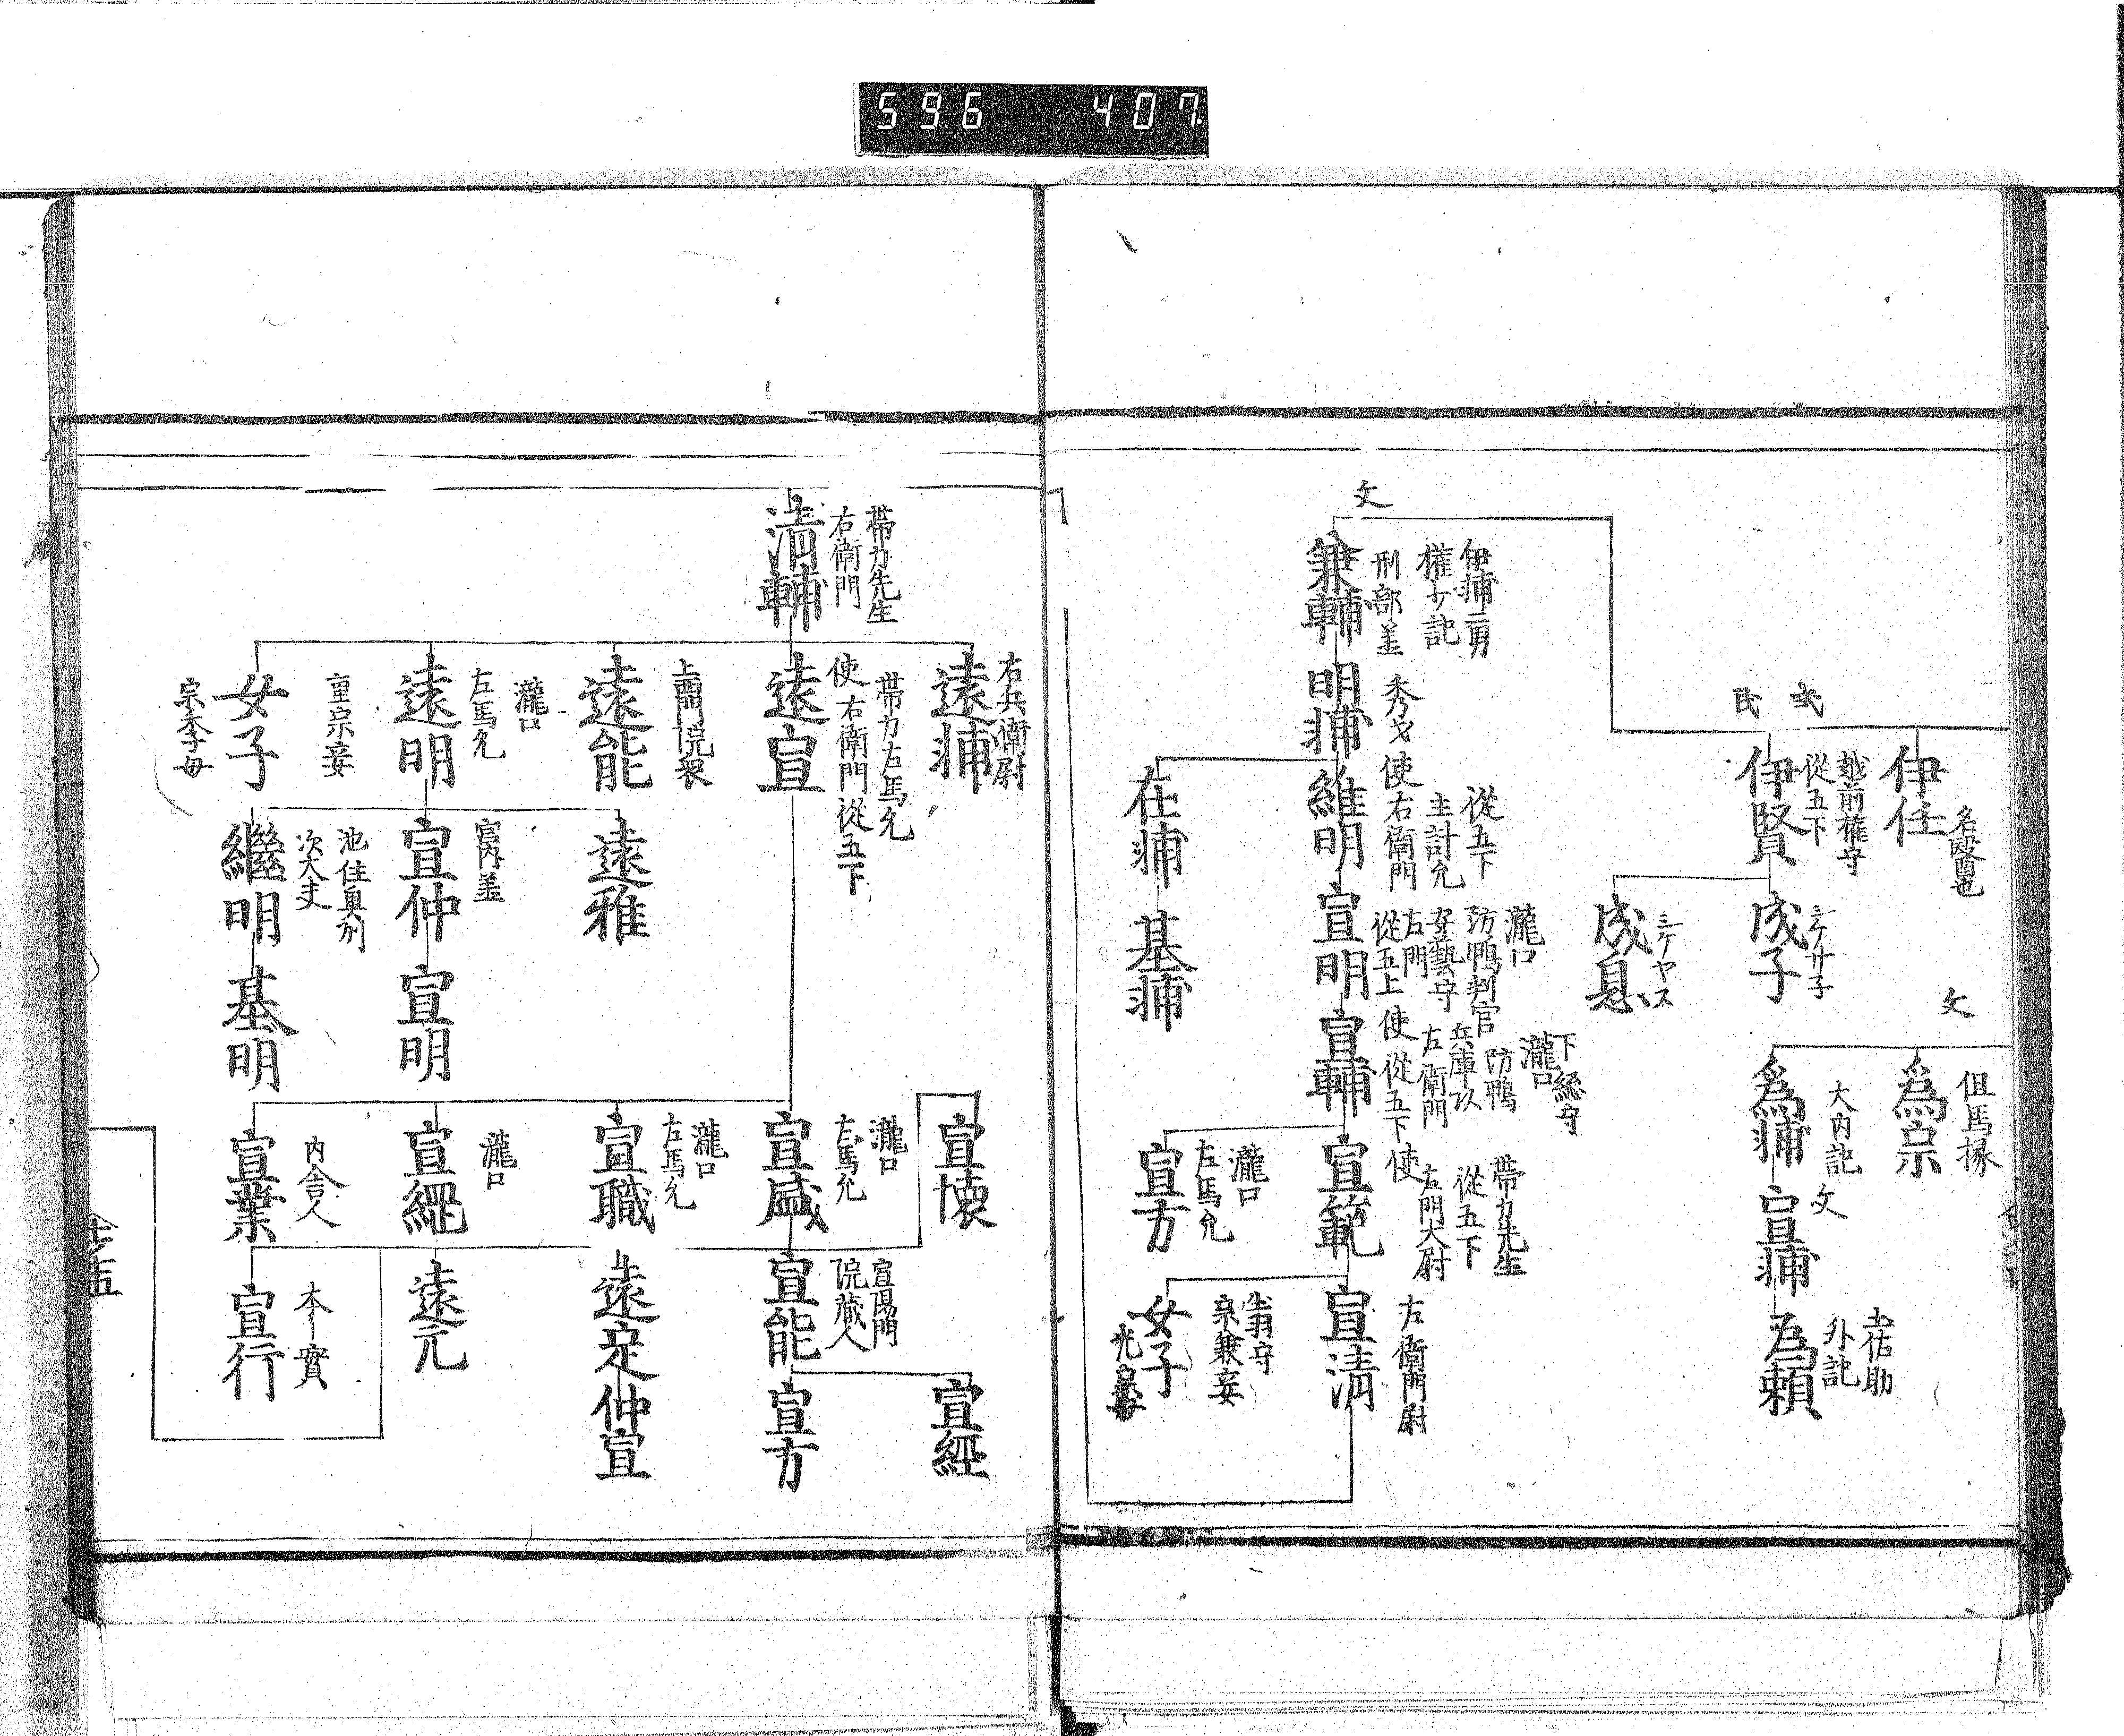 596 407.
伊任
名医也
越前権守
從五下
伊賢
式
民
成子
シケサ子
成息
シケヤス
文
但馬掾
爲宗
大内記
爲輔
文
宣輔
土佐助
外記
為頼
文
伊輔二男
権少記
刑部
兼輔
秀才
明輔
從五下
主計允
使右衛門
維明
瀧口
防鴨判官
安藝守
左門
從五上
宣明
下総守
瀧口
防鴨
兵庫
左衛門
使從五下
宣輔
帯刀先生
從五下
左門大尉
使
宣範
左衛門尉
宣清
在輔
基輔
瀧口
左馬允
宣方
宗兼妾
女子
帯刀先生
右衛門
清輔
右兵衛尉
遠輔
帯刀左馬允
使右衛門從五下
遠宣
上西門院衆
遠能
瀧口
左馬允
遠明
重宗妾
女子
宗季母
遠雅
宣仲
宣明
池住奥州
次大夫
繼明
基明
宣懐
瀧口
左馬允
宣盛
瀧口
左馬允
宣職
瀧口
宣繩
内舎人
宣業
宣陽門
院蔵人
宣能
宣經
宣方
遠定
仲宣
遠元
本實
宣行